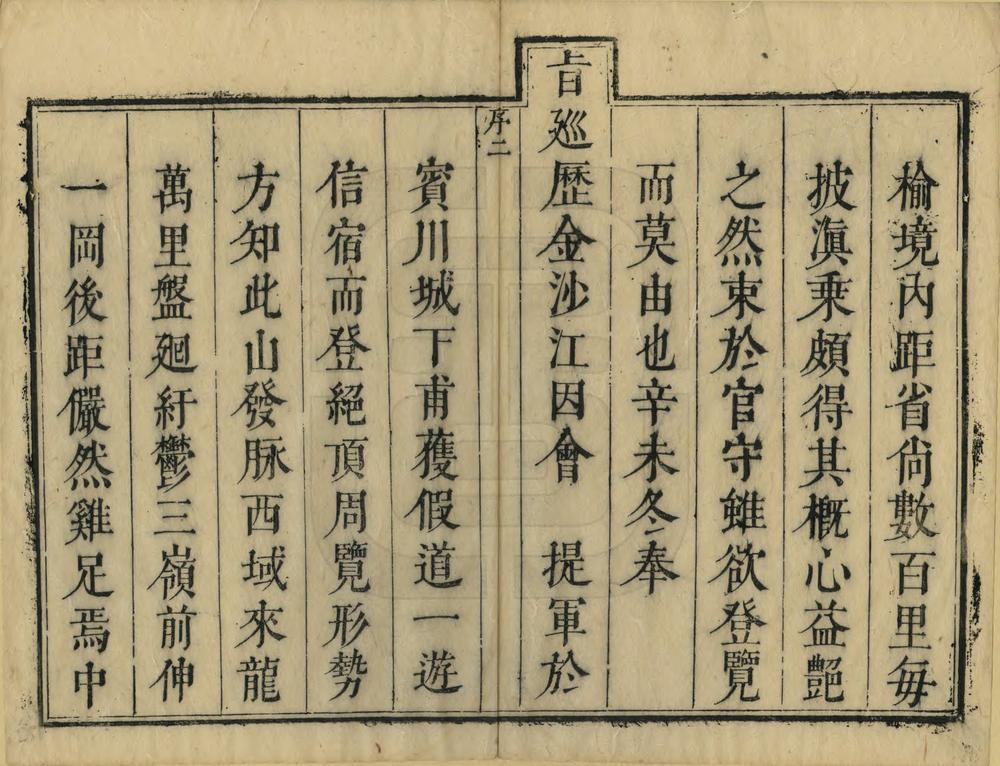 榆境內距省尙數百里每
披滇乗頗得其概心益艷
之然束於官守雖欲登覽
而莫由也辛未冬奉
旨廵歷金沙江因會　提軍於
序二
賓川城下甫獲假道一遊
信宿而登絕頂周覽形勢
方知此山發脉西域來龍
萬里盤廻紆鬱三嶺前伸
一岡後距儼然雞足焉中